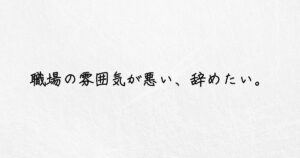 職場の雰囲気が悪い、辞めたい。